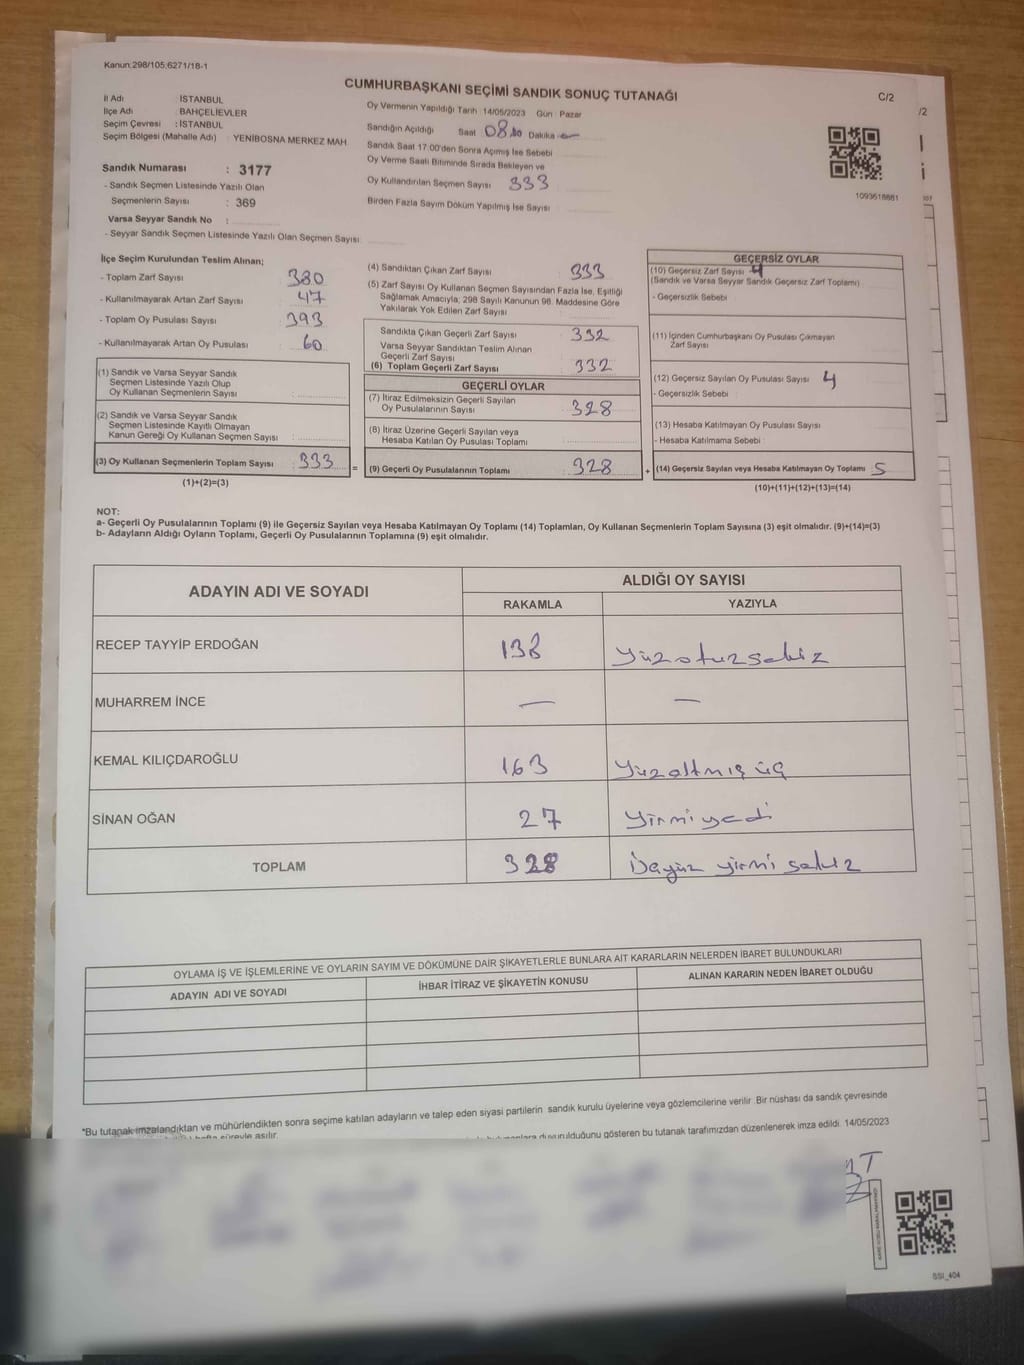 Kanun:298/105;6271/18-1
CUMHURBAŞKANI SEÇİMİ SANDIK SONUÇ TUTANAĞI
C/2
/2
İl Adı : İSTANBUL
İlçe Adı : BAHÇELİEVLER
Seçim Çevresi : İSTANBUL
Seçim Bölgesi (Mahalle Adı) : YENİBOSNA MERKEZ MAH.
Sandık Numarası : 3177
- Sandık Seçmen Listesinde Yazılı Olan
Seçmenlerin Sayısı : 369
Varsa Seyyar Sandık No :
- Seyyar Sandık Seçmen Listesinde Yazılı Olan Seçmen Sayısı:
Oy Vermenin Yapıldığı Tarih 14/05/2023 Gün : Pazar
Sandığın Açıldığı Saat 08.00 Dakika
Sandık Saat 17:00'den Sonra Açımış İse Sebebi
Oy Verme Saati Bitiminde Sırada Bekleyen ve
Oy Kullandırılan Seçmen Sayısı 333
Birden Fazla Sayım Döküm Yapılmış İse Sayısı
1093618881
İlçe Seçim Kurulundan Teslim Alınan;
- Toplam Zarf Sayısı 380
- Kullanılmayarak Artan Zarf Sayısı 47
- Toplam Oy Pusulası Sayısı 393
- Kullanılmayarak Artan Oy Pusulası 60
(1) Sandık ve Varsa Seyyar Sandık
Seçmen Listesinde Yazılı Olup
Oy Kullanan Seçmenlerin Sayısı
(2) Sandık ve Varsa Seyyar Sandık
Seçmen Listesinde Kayıtlı Olmayan
Kanun Gereği Oy Kullanan Seçmen Sayısı :
(3) Oy Kullanan Seçmenlerin Toplam Sayısı : 333 =
(1)+(2)=(3)
(4) Sandıktan Çıkan Zarf Sayısı 333
(5) Zarf Sayısı Oy Kullanan Seçmen Sayısından Fazla İse, Eşitliği
Sağlamak Amacıyla; 298 Sayılı Kanunun 98. Maddesine Göre
Yakılarak Yok Edilen Zarf Sayısı
Sandıkta Çıkan Geçerli Zarf Sayısı 332
Varsa Seyyar Sandıktan Teslim Alınan
Geçerli Zarf Sayısı
(6) Toplam Geçerli Zarf Sayısı 332
GEÇERLİ OYLAR
(7) İtiraz Edilmeksizin Geçerli Sayılan
Oy Pusulalarının Sayısı 328
(8) İtiraz Üzerine Geçerli Sayılan veya
Hesaba Katılan Oy Pusulası Toplamı
(9) Geçerli Oy Pusulalarının Toplamı 328 +
GEÇERSİZ OYLAR
(10) Geçersiz Zarf Sayısı
(Sandık ve Varsa Seyyar Sandık Geçersiz Zarf Toplamı)
- Geçersizlik Sebebi :
(11) İçinden Cumhurbaşkanı Oy Pusulası Çıkmayan
Zarf Sayısı
(12) Geçersiz Sayılan Oy Pusulası Sayısı 4
- Geçersizlik Sebebi :
(13) Hesaba Katılmayan Oy Pusulası Sayısı
- Hesaba Katılmama Sebebi :
(14) Geçersiz Sayılan veya Hesaba Katılmayan Oy Toplamı 5
(10)+(11)+(12)+(13)=(14)
NOT:
a- Geçerli Oy Pusulalarının Toplamı (9) ile Geçersiz Sayılan veya Hesaba Katılmayan Oy Toplamı (14) Toplamları, Oy Kullanan Seçmenlerin Toplam Sayısına (3) eşit olmalıdır. (9)+(14)=(3)
b- Adayların Aldığı Oyların Toplamı, Geçerli Oy Pusulalarının Toplamına (9) eşit olmalıdır.
ADAYIN ADI VE SOYADI
ALDIĞI OY SAYISI
RAKAMLA YAZIYLA
RECEP TAYYİP ERDOĞAN 138 yüzotuzsekiz
MUHARREM İNCE — —
KEMAL KILIÇDAROĞLU 163 yüzaltmış üç
SİNAN OĞAN 27 yirmiyedi
TOPLAM 328 üçyüz yirmi sekiz
OYLAMA İŞ VE İŞLEMLERİNE VE OYLARIN SAYIM VE DÖKÜMÜNE DAİR ŞİKAYETLERLE BUNLARA AİT KARARLARIN NELERDEN İBARET BULUNDUKLARI
ADAYIN ADI VE SOYADI İHBAR İTİRAZ VE ŞİKAYETİN KONUSU ALINAN KARARIN NEDEN İBARET OLDUĞU
*Bu tutanak imzalandıktan ve mühürlendikten sonra seçime katılan adayların ve talep eden siyasi partilerin sandık kurulu üyelerine veya gözlemcilerine verilir. Bir nüshası da sandık çevresinde
hafta süreyle asılır.
duyurulduğunu gösteren bu tutanak tarafımızdan düzenlenerek imza edildi. 14/05/2023
SSI_404